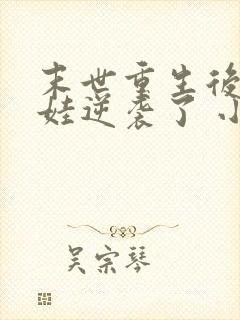 末世重生後
娃逆袭了 小
吴宗琴